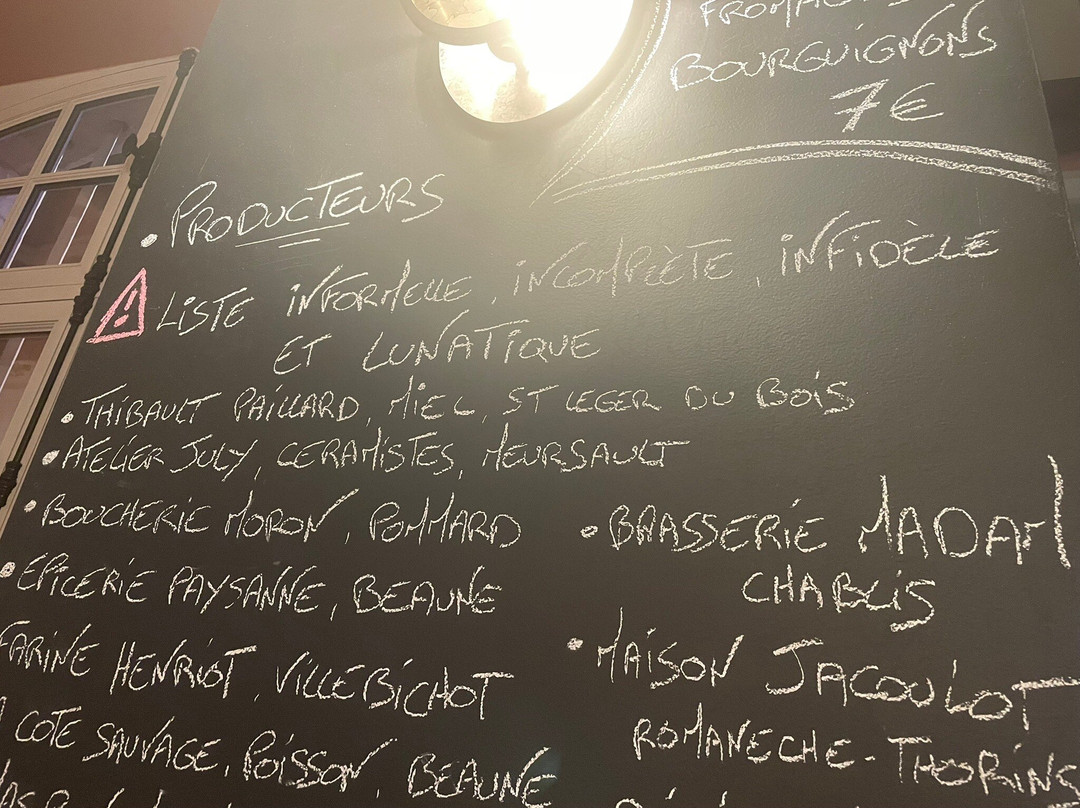 BOURGUIGNONS
7€
• PRODUCTEURS
LISTE INFORMELLE, INCOMPLÈTE, INFIDÈLE
ET LUNATIQUE
• THIBAULT PAILLARD, MIEL, ST LEGER DU BOIS
• ATELIER JULY, CERAMISTES, MEURSAULT
• BOUCHERIE MORON, POMMARD
• EPICERIE PAYSANNE, BEAUNE
FARINE HENRIOT, VILLEBICHOT
COTE SAUVAGE, POISSON, BEAUNE
• BRASSERIE MADAM
CHABLIS
• MAISON JACOULOT
ROMANECHE-THORINS